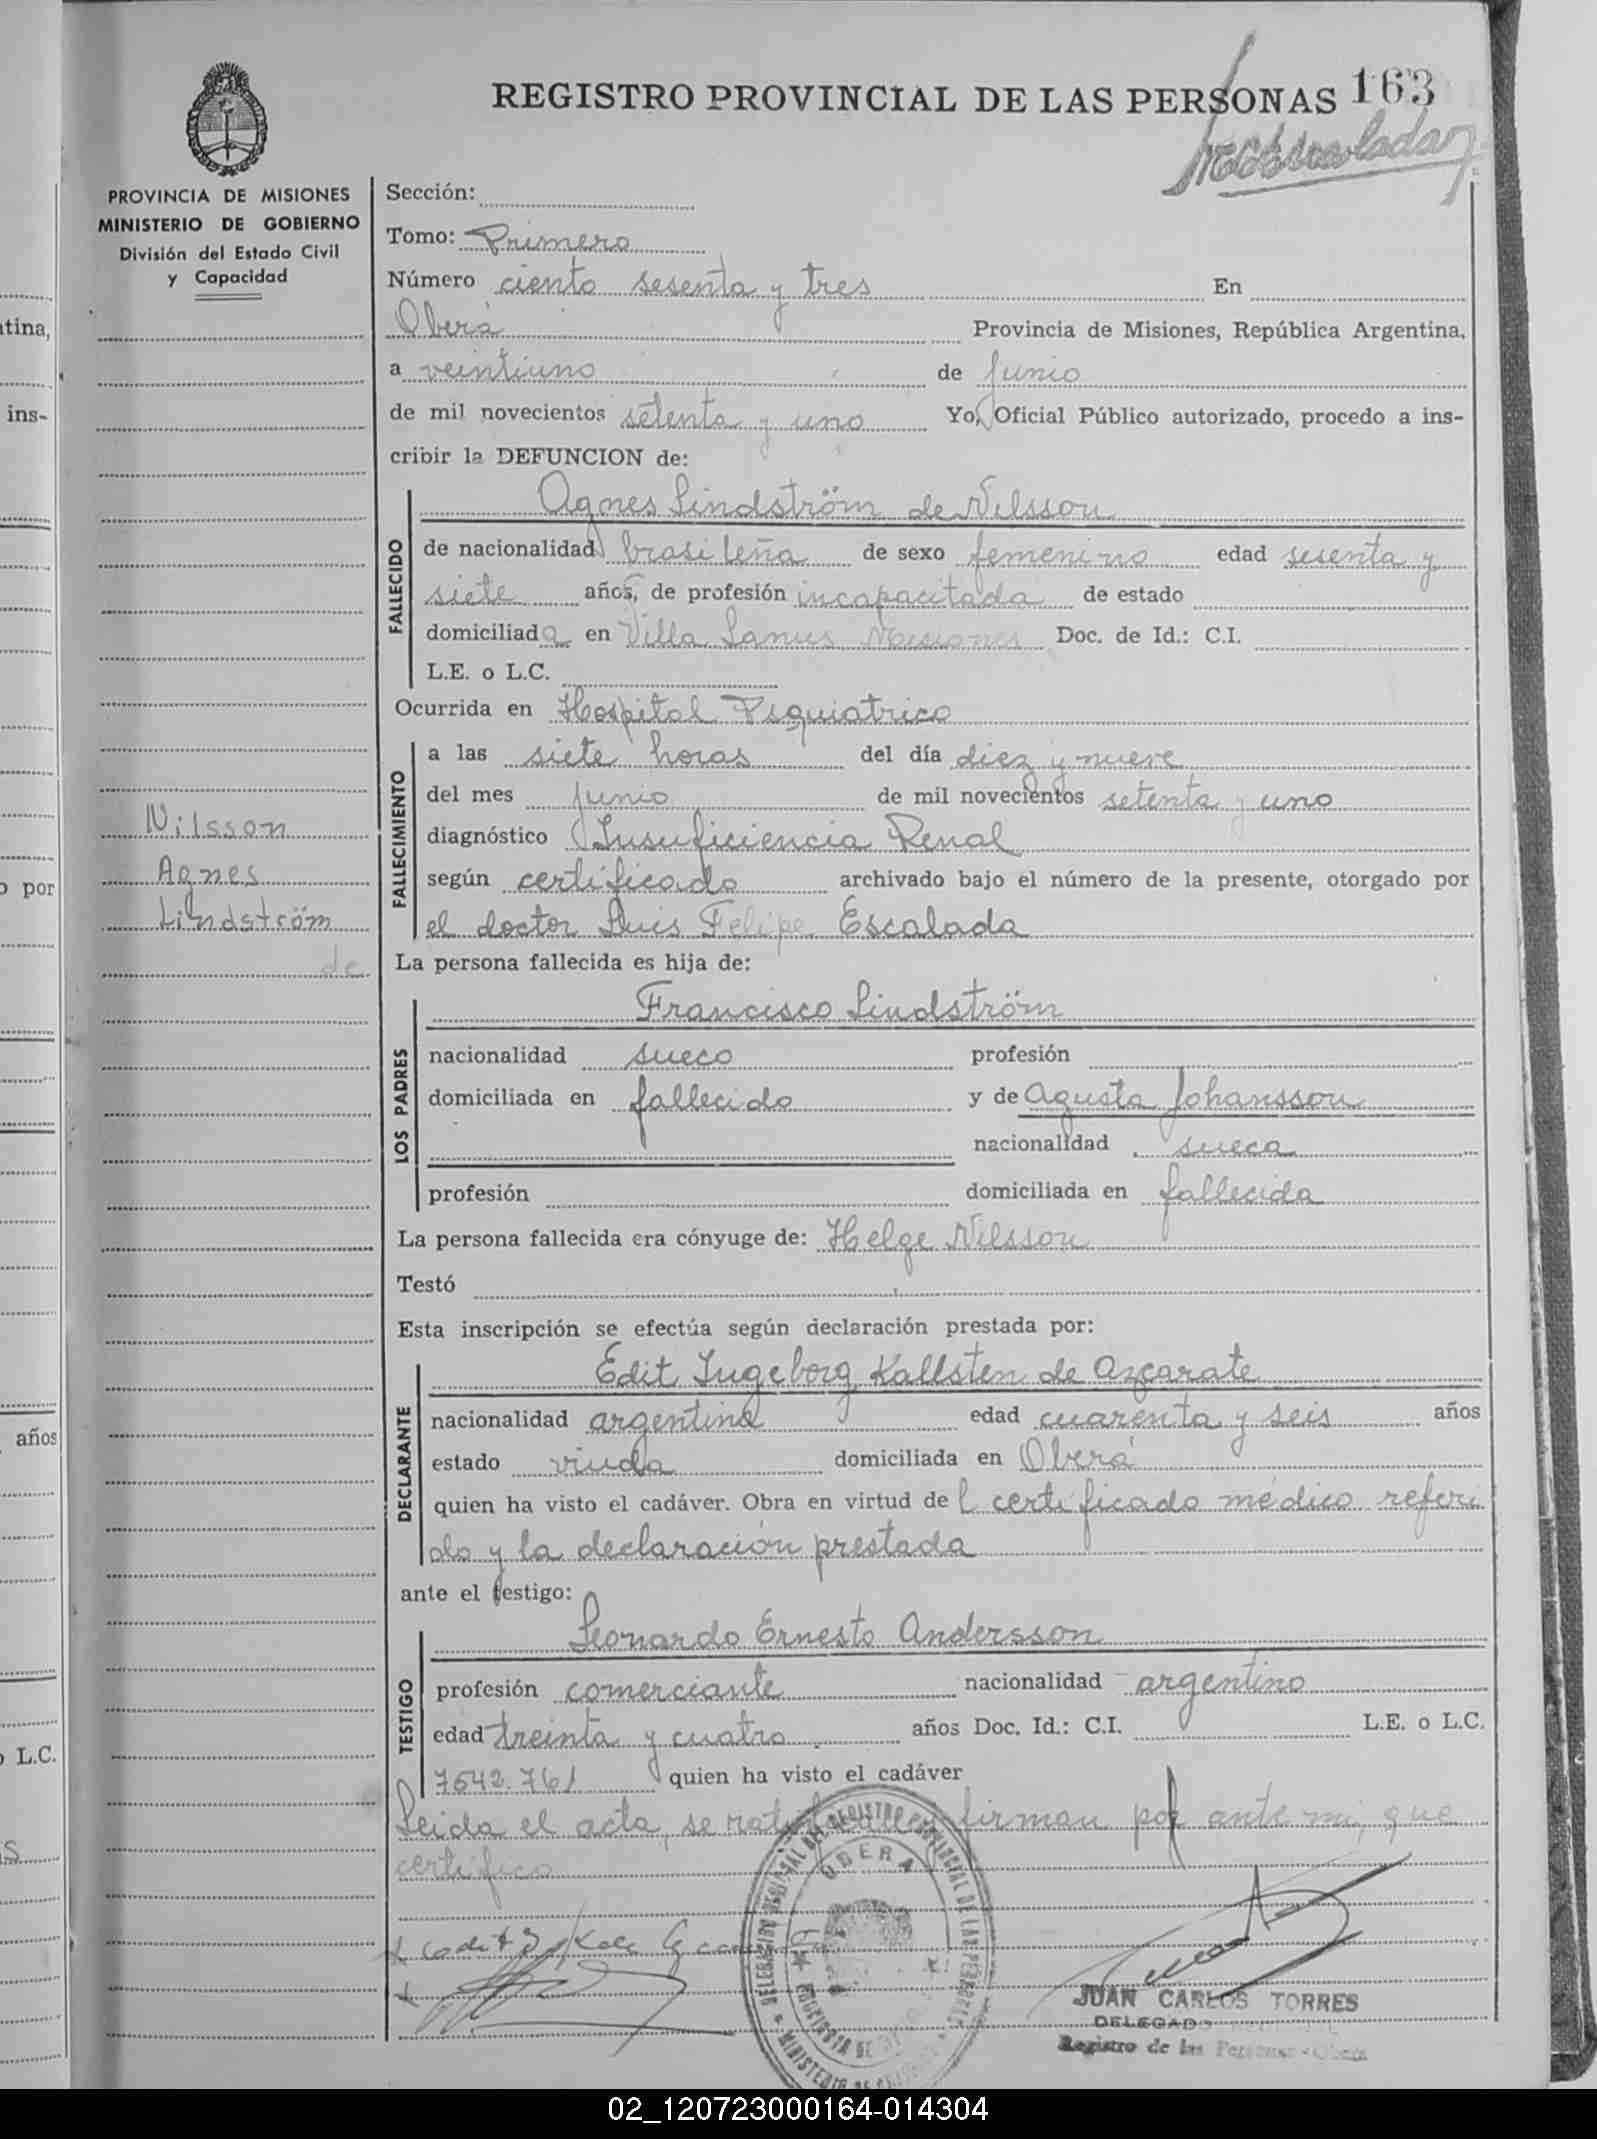 REGISTRO PROVINCIAL DE LAS PERSONAS 163
PROVINCIA DE MISIONES
MINISTERIO DE GOBIERNO
División del Estado Civil
y Capacidad
Sección:
Tomo: Primero
Número ciento sesenta y tres En
Oberá Provincia de Misiones, República Argentina,
a veintiuno de junio
de mil novecientos setenta y uno Yo, Oficial Público autorizado, procedo a ins-
cribir la DEFUNCION de:
FALLECIDO
Agnes Lindström de Nilsson
de nacionalidad brasileña de sexo femenino edad sesenta y
siete años, de profesión incapacitada de estado
domiciliada en Villa Lanus Misiones Doc. de Id.: C.I.
L.E. o L.C.
Ocurrida en Hospital Psiquiatrico
FALLECIMIENTO
a las siete horas del día diez y nueve
del mes junio de mil novecientos setenta y uno
diagnóstico Insuficiencia Renal
según certificado archivado bajo el número de la presente, otorgado por
el doctor Luis Felipe Escalada
Nilsson
Agnes
Lindström
de
La persona fallecida es hija de:
LOS PADRES
Francisco Lindström
nacionalidad sueco profesión
domiciliada en fallecido y de Agusta Johansson
nacionalidad sueca
profesión domiciliada en fallecida
La persona fallecida era cónyuge de: Helge Nilsson
Testó
Esta inscripción se efectúa según declaración prestada por:
DECLARANTE
Edit Ingeborg Kallsten de Azcarate
nacionalidad argentina edad cuarenta y seis años
estado viuda domiciliada en Oberá
quien ha visto el cadáver. Obra en virtud del certificado médico referi
do y la declaración prestada
ante el testigo:
TESTIGO
Leonardo Ernesto Andersson
profesión comerciante nacionalidad argentino
edad treinta y cuatro años Doc. Id.: C.I. L.E. o L.C.
7642.761 quien ha visto el cadáver
Leida el acta, se ratifican firman por ante mi, que
certifico
OBERA
JUAN CARLOS TORRES
DELEGADO
Registro de las Personas - Oberá
tina,
ins-
o por
años
o L.C.
02_120723000164-014304